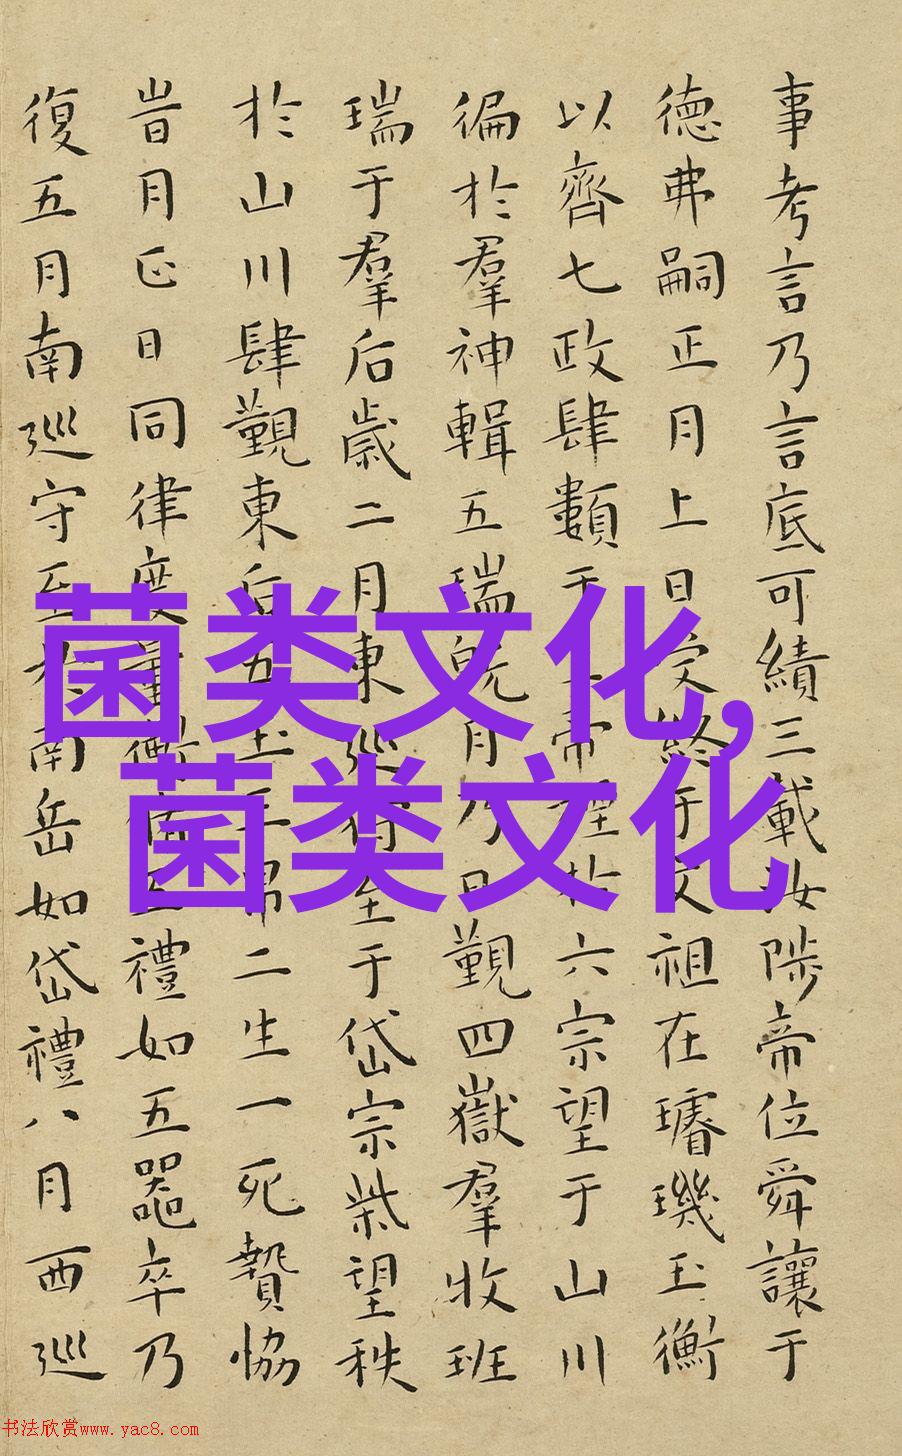 事考言乃言底可績三載汝陟帝位舜讓于
德弗嗣正月上日受終于文祖在璿璣玉衡
以齊七政肆類于上帝禋於六宗望于山川
徧於羣神輯五瑞旣月乃日覲四嶽羣牧班
瑞于羣后歲二月東巡狩至于岱宗柴望秩
於山川肆覲東后五玉三帛二生一死贄協
旹月正日同律度量衡五禮如五器卒乃
復五月南巡守至於南岳如岱禮八月西巡
菌类文化,
菌类文化
书法欣赏www.yac8.com